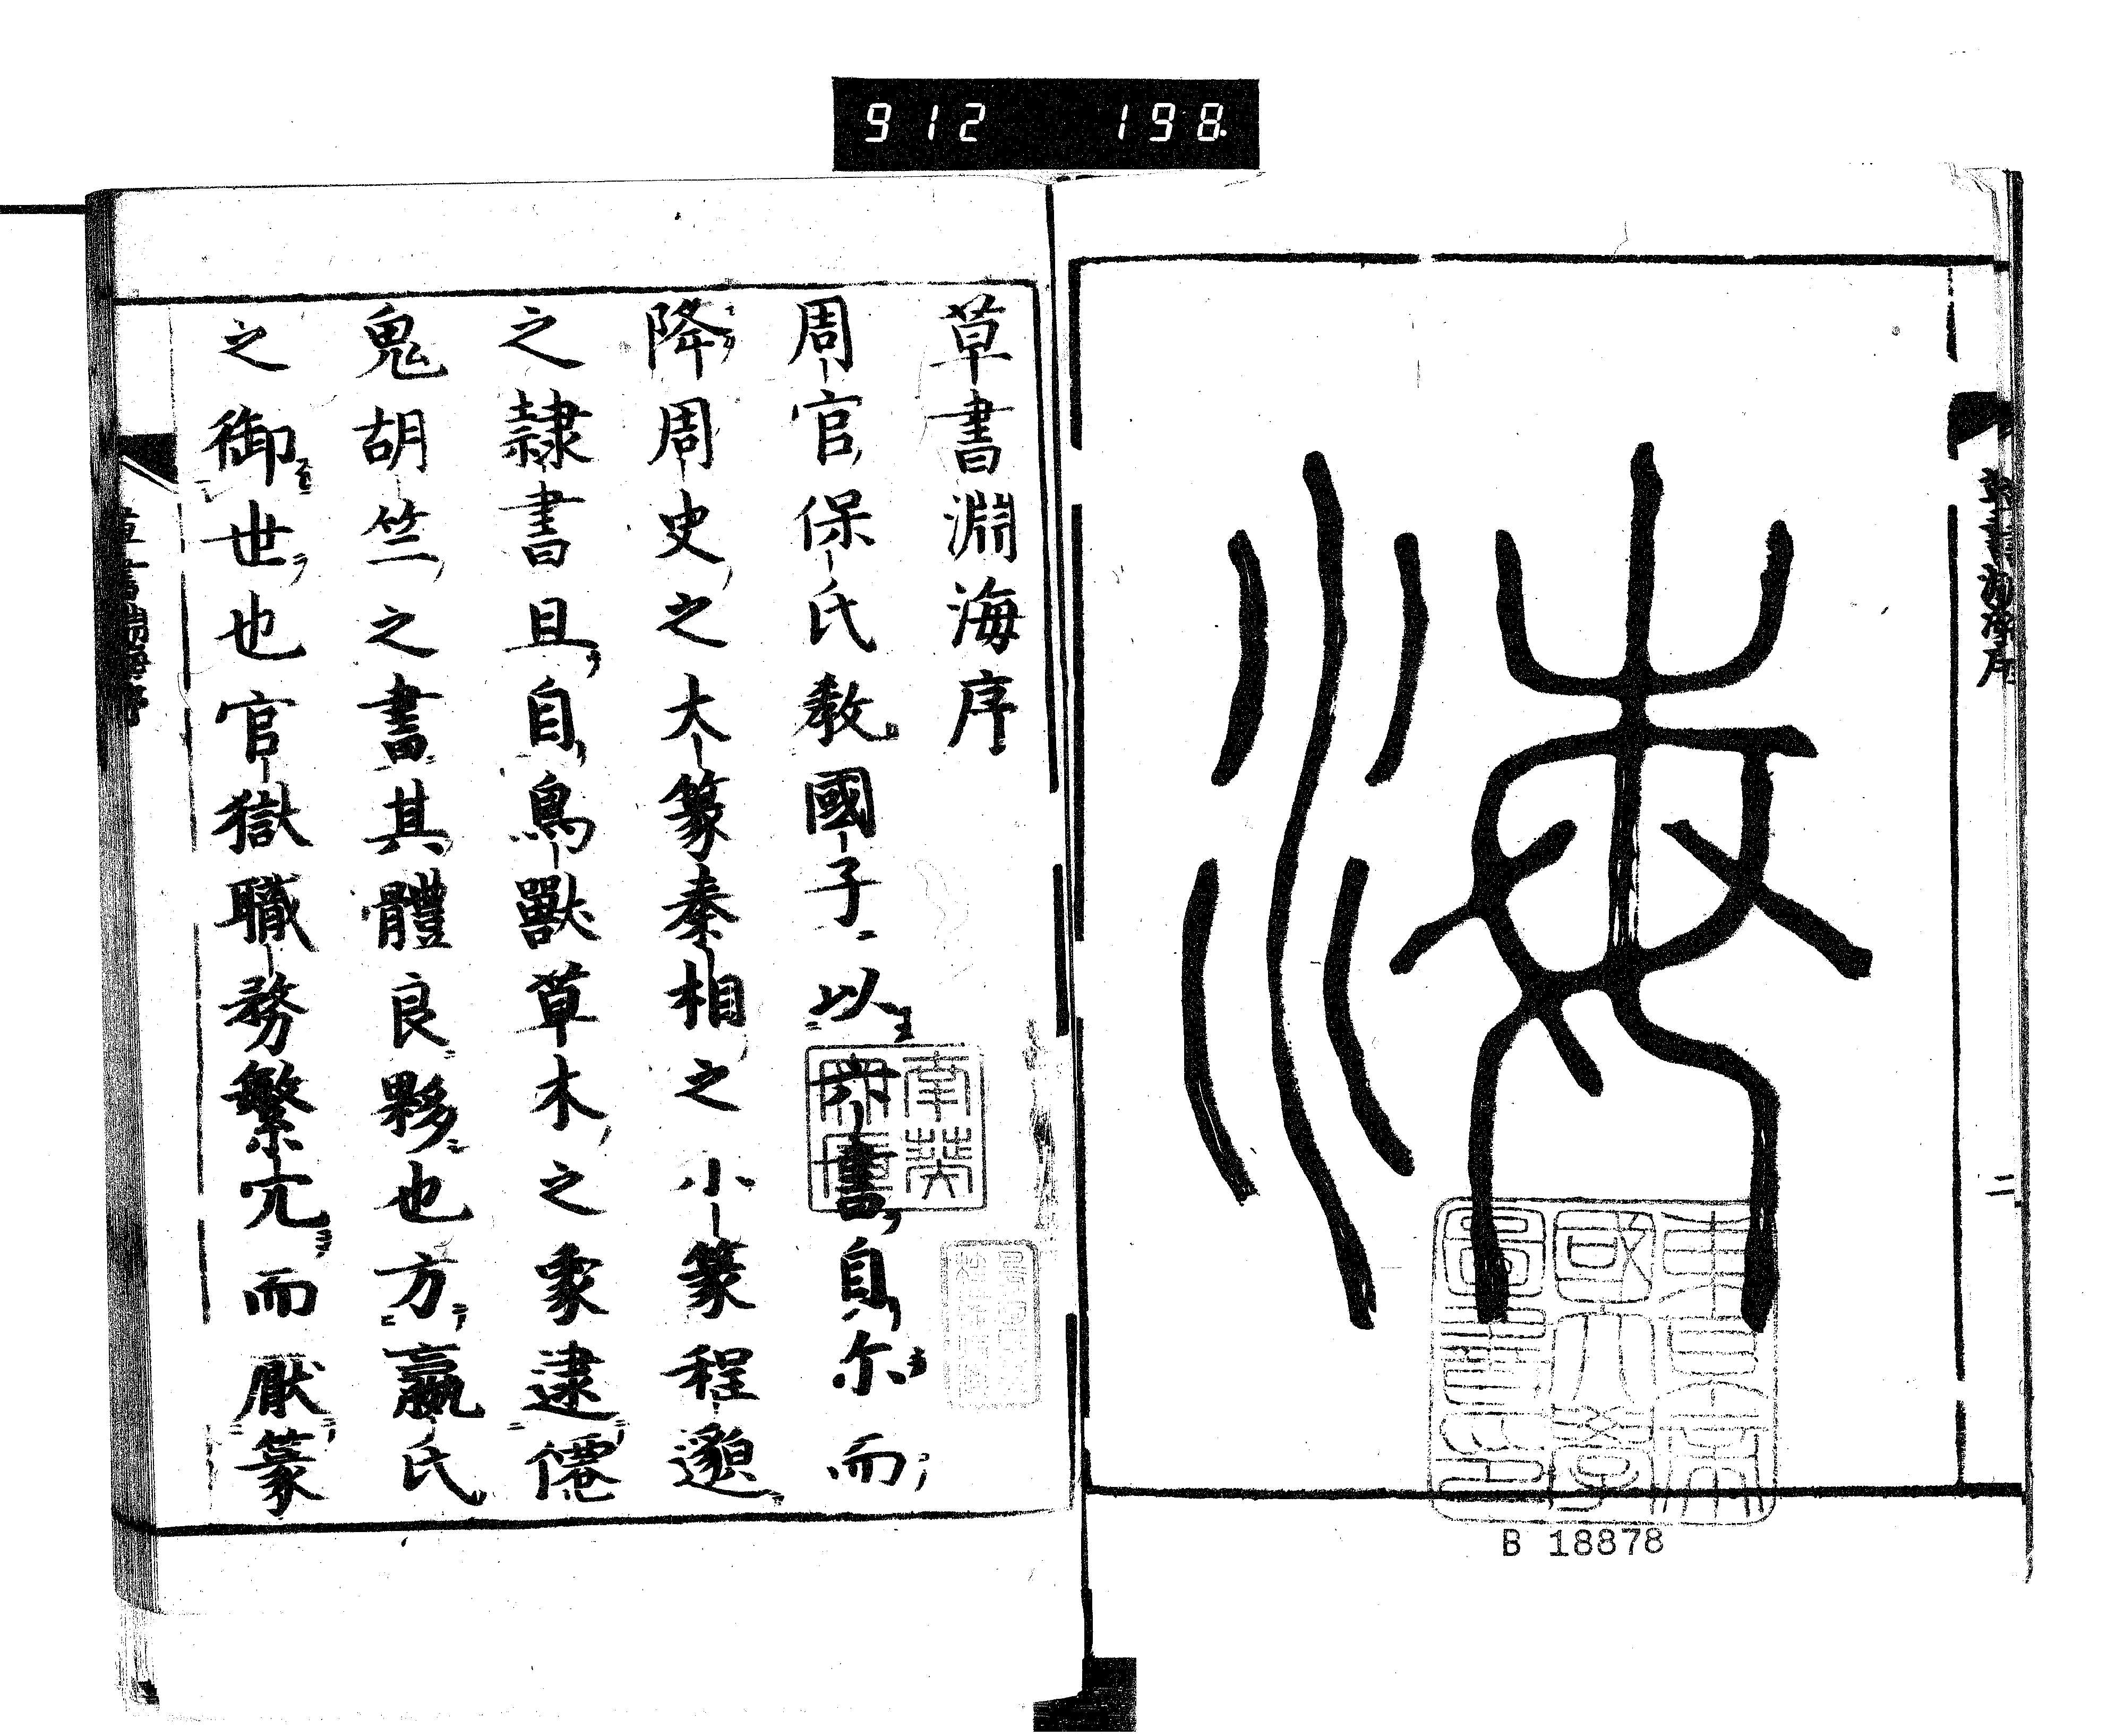 912 198.
海
草書淵海序
周官保氏教國子以六書自尔而
降周史之大篆秦相之小篆程邈
之隷書且自鳥獸草木之象逮僊
鬼胡竺之書其體良夥也方嬴氏
之御世也官獄職務繁宂而厭篆
二
東京帝國大學圖書印
B 18878
南葵文庫